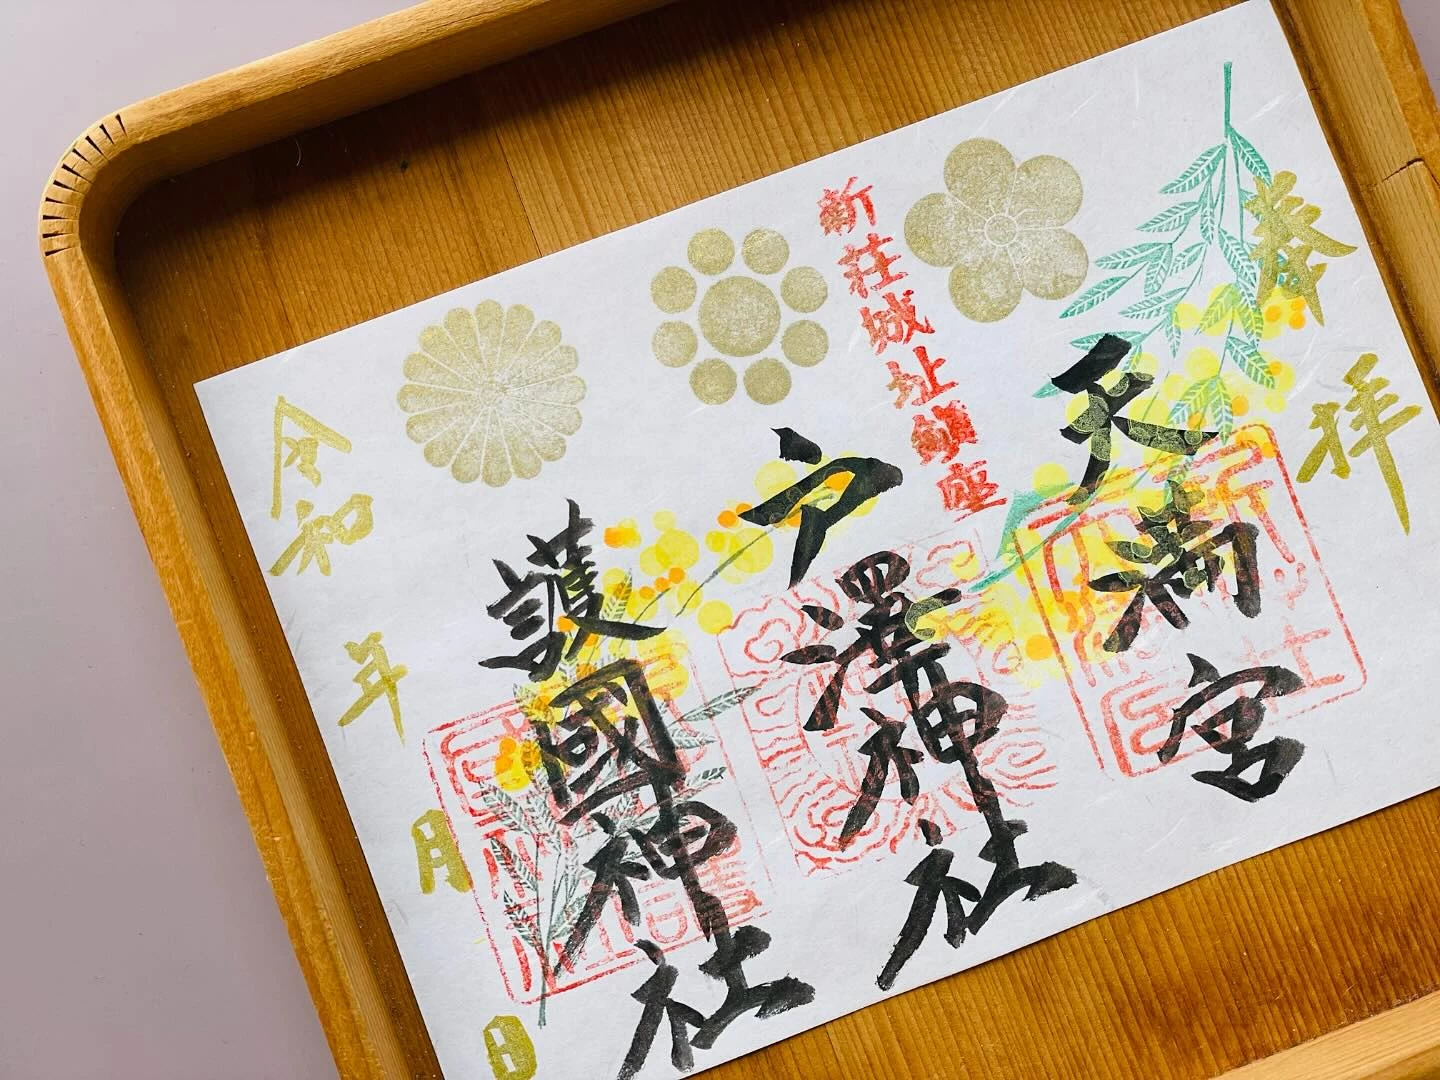 奉拝
天満宮
新荘城址鎮座
戸澤神社
護國神社
令和 年 月 日